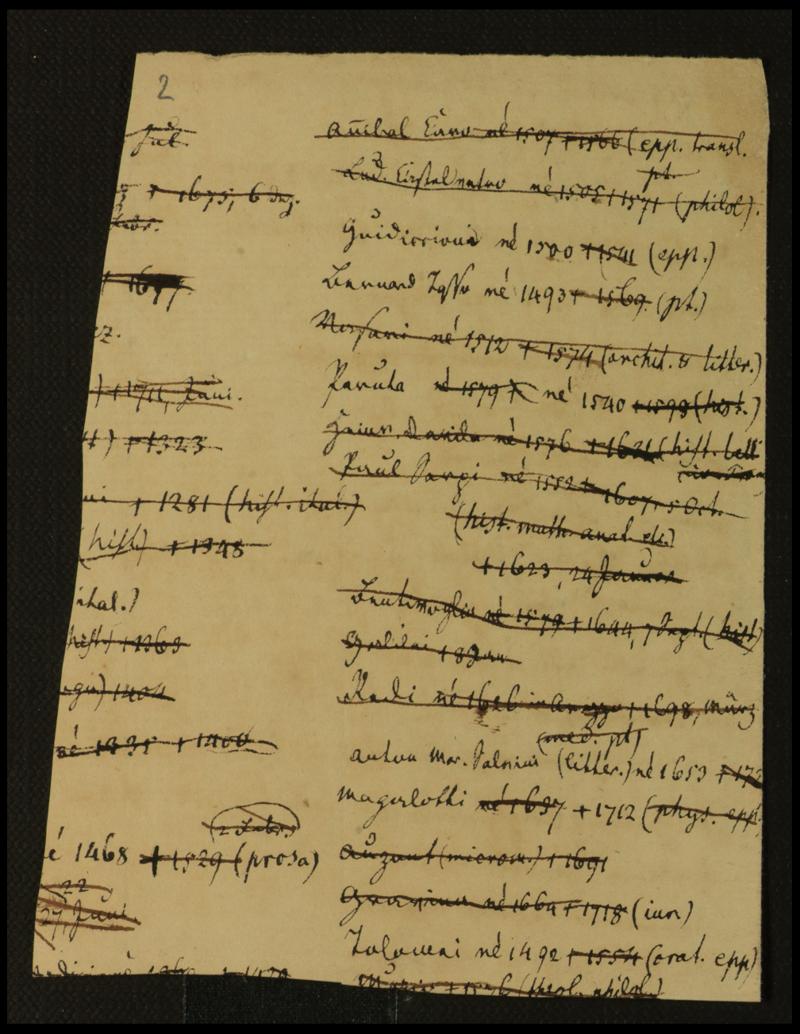 2
Jul.
+ 1675, 6
+ 1677
+ 1711, Juni.
) + 1323
+ 1281 (hist. ital.)
(hist) + 1348
ital.)
hist) + 1363
1404
né 1335 + 1400
é 1468 + 1529 (prosa)
22
27 Juni
Añibal Caro né 1507 + 1566 (epp. transl.
pt.
Lud. Castelvetro né 1505 + 1571 (philol).
Guidiccioni né 1500 + 1541 (epp.)
Bernard Tasso né 1493 + 1569 (pt.)
Vasari né 1512 + 1574 (archit. & litter.)
Paruta né 1579 né 1540 + 1598 (hist.)
Davila né 1576 + 1631 (hist. bell
Paul Sarpi né 1552 + 1607. 5 Oct.
(hist. math. anat. etc.)
+ 1623, 24 Januar
Bentivoglio né 1579 + 1644, 7 Sept. (hist)
Galilei + 8 Jan
Redi né 1626 in Arezzo + 1698, März
(med. pt)
Anton Mar. Salvini (litter.) né 1653 + 172
Magalotti né 1637 + 1712 (phys. epp.
Auzout (microm.) + 1691
Gravina né 1664 + 1718 (iur.)
Tolomei né 1492 + 1554 (orat. epp)
(theol. philol.)